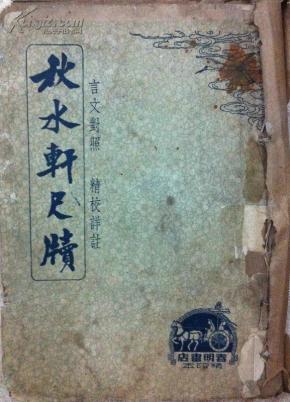 秋水軒尺牘
言文對照 精校詳註
春明書店
精印本